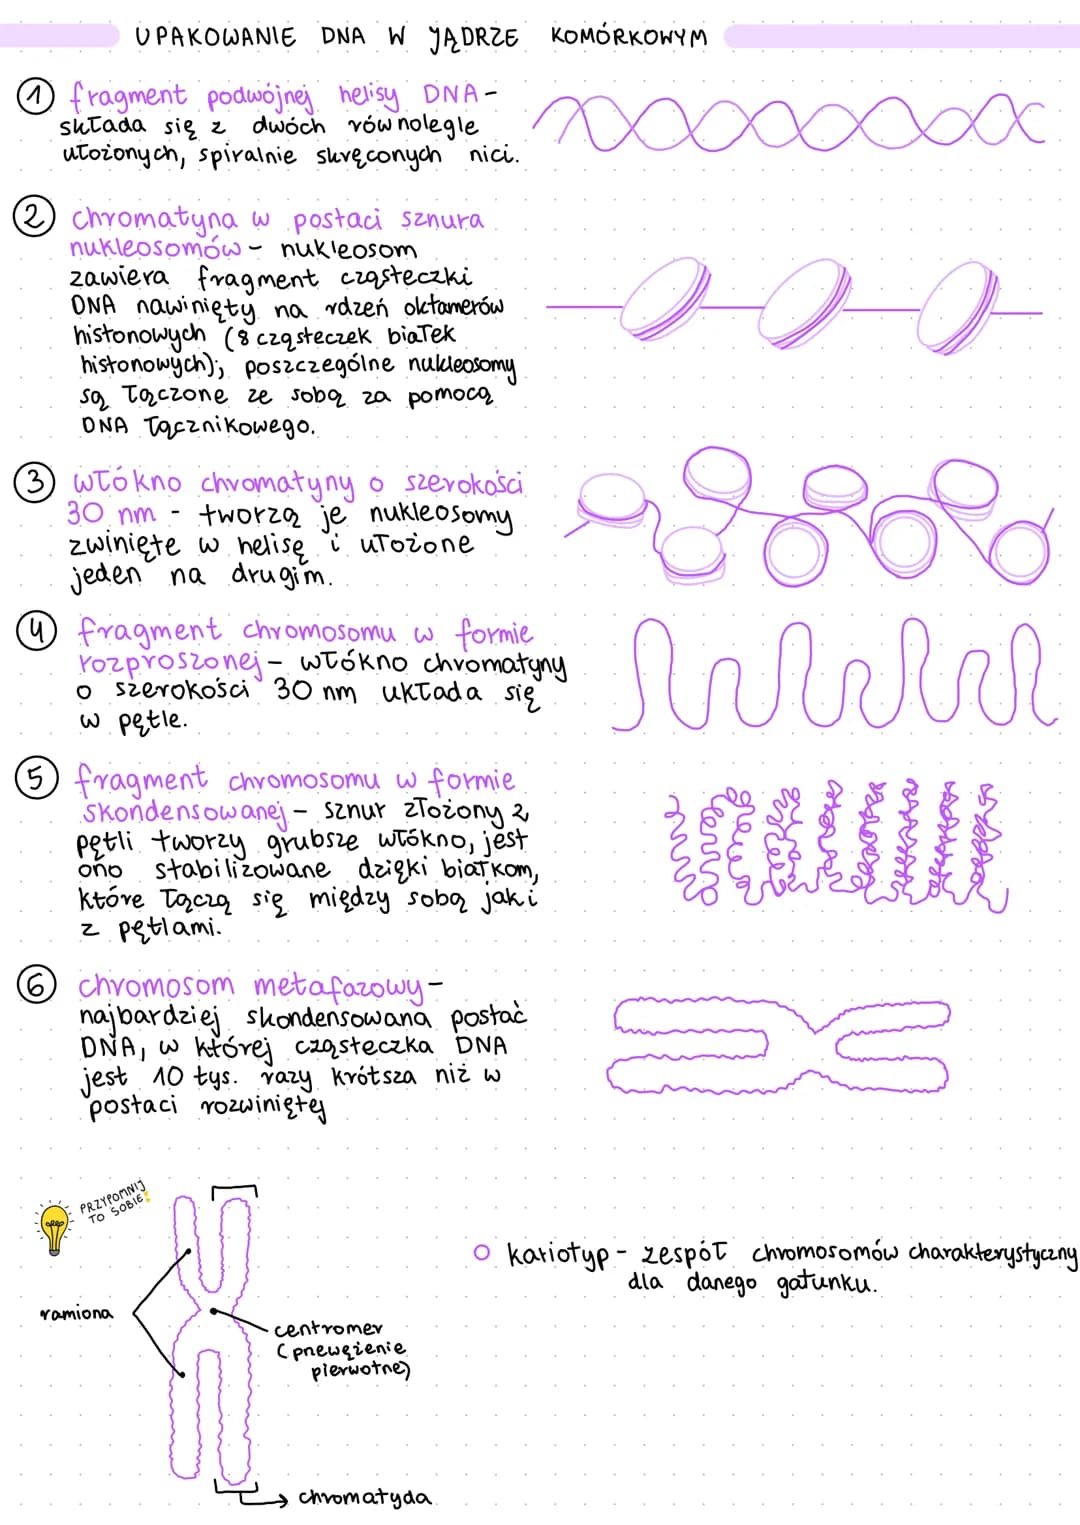 UPAKOWANIE DNA W JĄDRZE KOMÓRKOWYM
1 fragment podwójnej helisy DNA-
składa się z dwóch równolegle
ułożonych, spiralnie skręconych nici.
2 chromatyna w postaci sznura
nukleosomów - nukleosom
zawiera fragment cząsteczki
DNA nawinięty na rdzeń oktamerów
histonowych (8 cząsteczek białek
histonowych); poszczególne nukleosomy
są łączone ze sobą za pomocą
DNA łącznikowego.
3 włókno chromatyny o szerokości
30 nm - tworzą je nukleosomy
zwinięte w helisę i ułożone
jeden na drugim.
4 fragment chromosomu w formie
rozproszonej - włókno chromatyny
o szerokości 30 nm układa się
w pętle.
5 fragment chromosomu w formie
skondensowanej - sznur złożony z
pętli tworzy grubsze włókno, jest
ono stabilizowane dzięki białkom,
które łączą się między sobą jak i
z pętlami.
6 chromosom metafazowy -
najbardziej skondensowana postać
DNA, w której cząsteczka DNA
jest 10 tys. razy krótsza niż w
postaci rozwiniętej
PRZYPOMNIJ
TO SOBIE!
kariotyp - zespół chromosomów charakterystyczny
dla danego gatunku.
ramiona
centromer
(przewężenie
pierwotne)
chromatyda